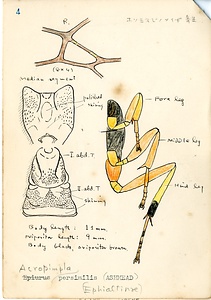 4
R.
(10×4)
Median segment
polished
shining
Fore leg
Middle leg
I. abd. T
Hind leg
II. abd. T
Shining
Body length : 13 mm.
ovipositor length : 9 mm.
Body black, ovipositor brown.
Acropimpla
Epiurus persimilis (ASHMEAD)
(Ephialtinae)